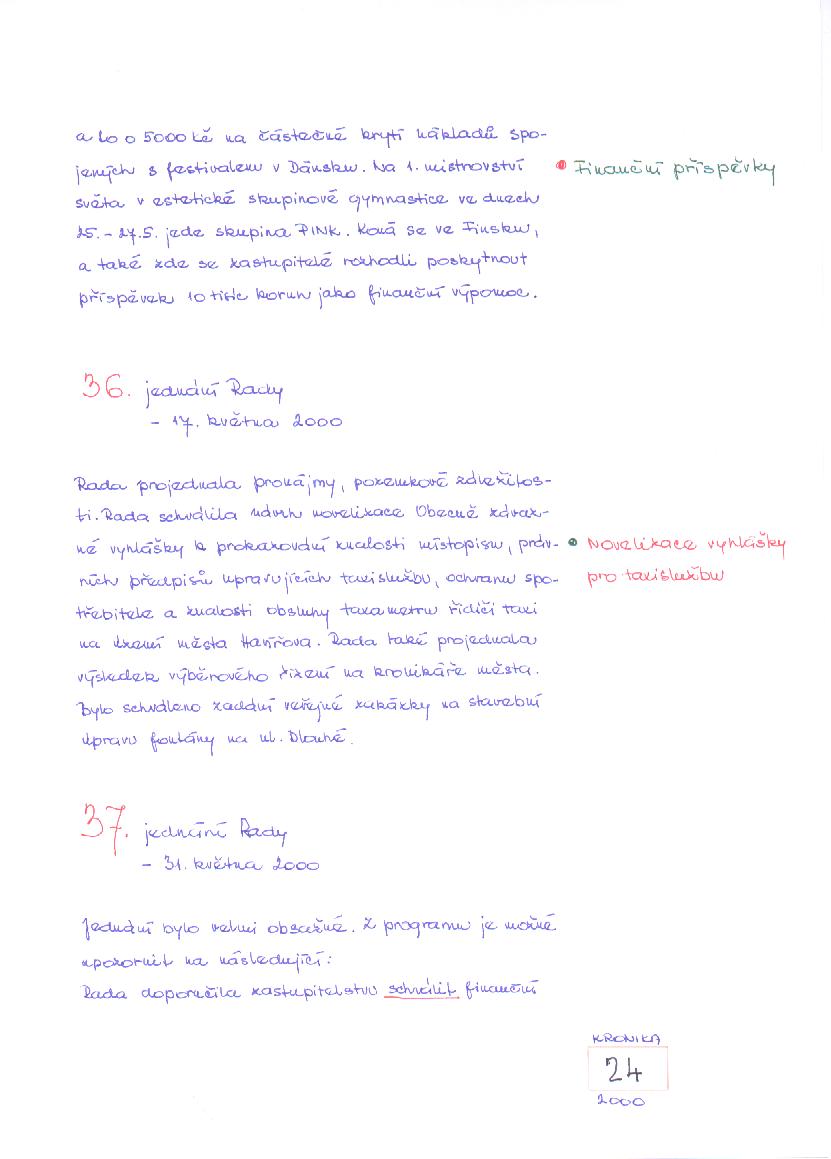 a to o 5000 kč na částečné krytí nákladů spo-
jených s festivalem v Dánsku. Na 1. mistrovství
• Finanční příspěvky
světa v estetické skupinové gymnastice ve dnech
25.-27.5. jede skupina PINK. Koná se ve Finsku,
a také zde se zastupitelé rozhodli poskytnout
příspěvek 10 tisíc korun jako finanční výpomoc.
36. jednání Rady
- 17. května 2000
Rada projednala pronájmy, pozemkové záležitos-
ti. Rada schválila návrh novelizace Obecně závaz-
né vyhlášky k prokazování znalosti místopisu, práv-
• Novelizace vyhlášky
pro taxislužbu
ních předpisů upravujících taxislužbu, ochranu spo-
třebitele a znalosti obsluhy taxametru řidiči taxi
na území města Havířova. Rada také projednala
výsledek výběrového řízení na kronikáře města.
Bylo schváleno zadání veřejné zakázky na stavební
úpravu fontány na ul. Dlouhé.
37. jednání Rady
- 31. května 2000
Jednání bylo velmi obsažné. Z programu je možné
upozornit na následující:
Rada doporučila zastupitelstvu schválit finanční
KRONIKA
24
2000